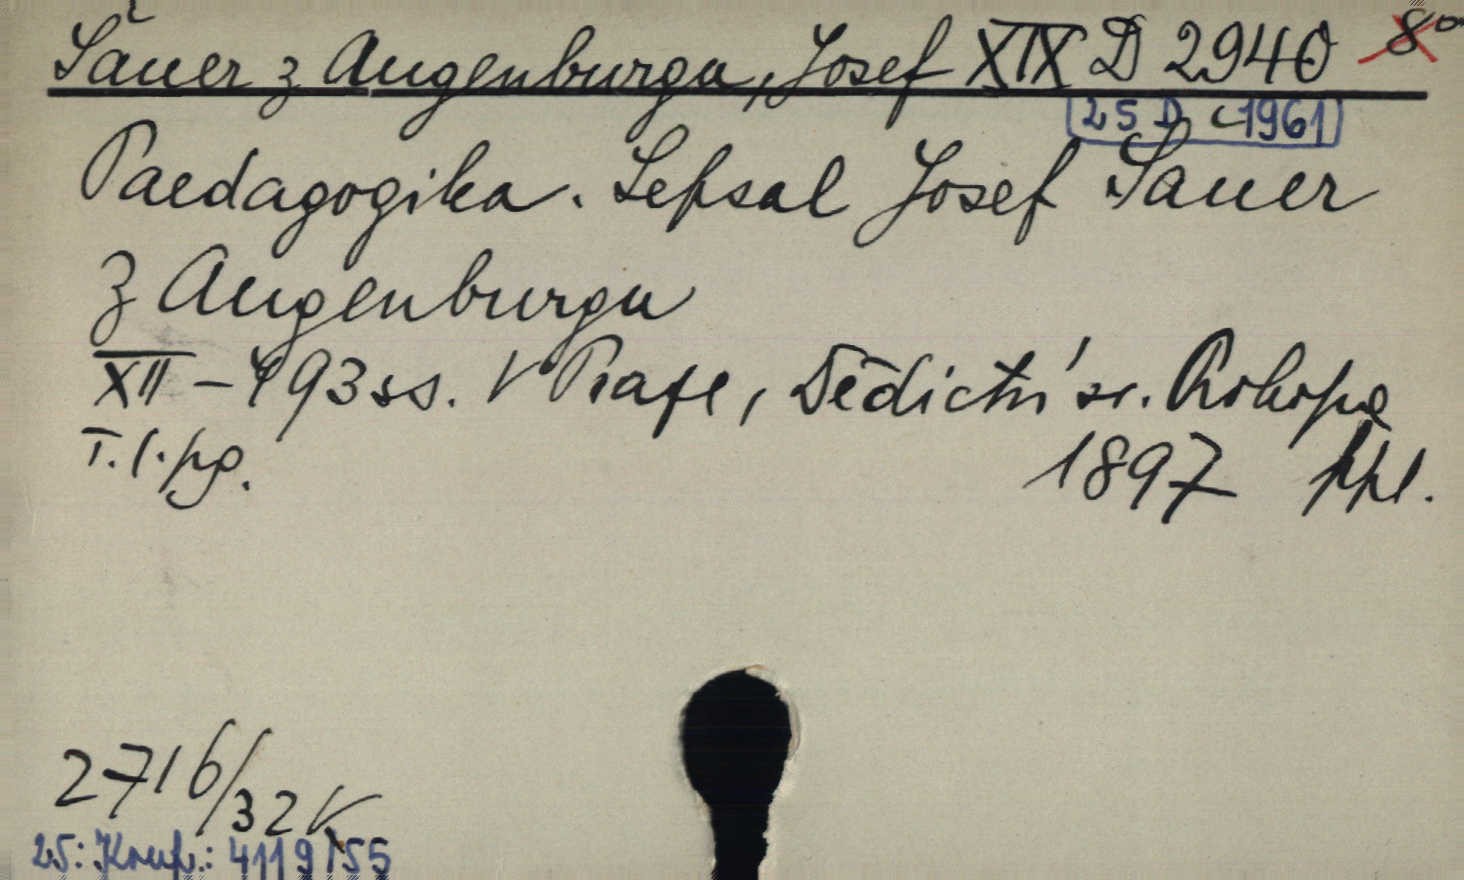 Šauer z Augenburgu, Josef XIX D 2940 8°
25 D 1961
Paedagogika. Sepsal Josef Šauer
z Augenburgu
XII – 493 ss. V Praze, Dědictví sv. Prokopa
T. l. pg. 1897 ppl.
2716/32 V
25: Konf.: 4119/55